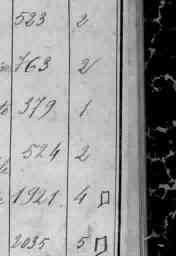 523 2
763 2
379 1
524 2
1921 4
2035 5